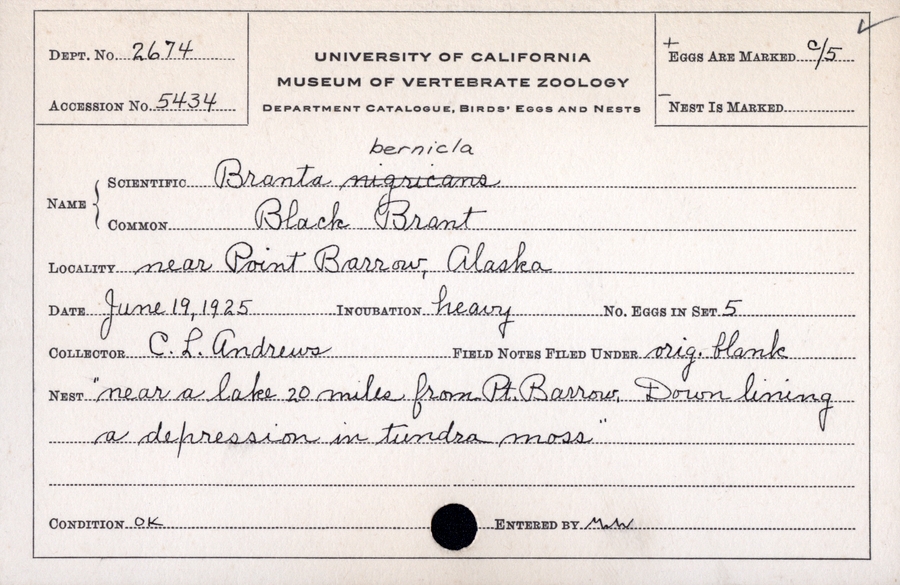 DEPT. No. 2674
ACCESSION No. 5434
UNIVERSITY OF CALIFORNIA
MUSEUM OF VERTEBRATE ZOOLOGY
DEPARTMENT CATALOGUE, BIRDS' EGGS AND NESTS
+ EGGS ARE MARKED c/5 ✓
– NEST IS MARKED
bernicla
NAME { SCIENTIFIC Branta nigricans
COMMON Black Brant
LOCALITY near Point Barrow, Alaska
DATE June 19, 1925 INCUBATION heavy NO. EGGS IN SET 5
COLLECTOR C. L. Andrews FIELD NOTES FILED UNDER orig. blank
NEST "near a lake 20 miles from Pt. Barrow. Down lining
a depression in tundra moss"
CONDITION OK ENTERED BY